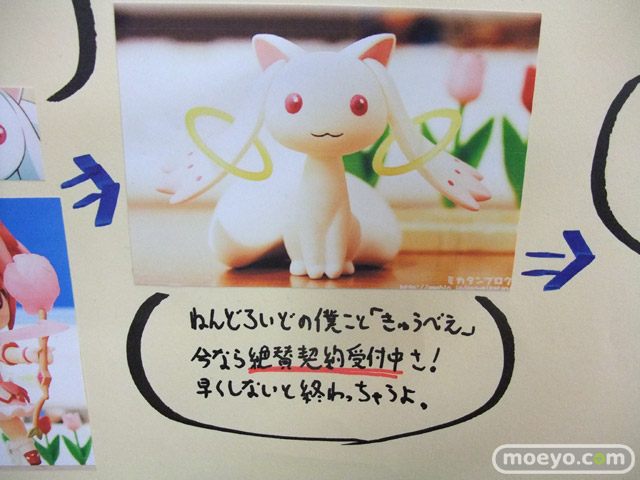 ミカタンブログ
ねんどろいどの僕こと「きゅうべえ」
今なら絶賛契約受付中さ!
早くしないと終わっちゃうよ。
moeyo.com